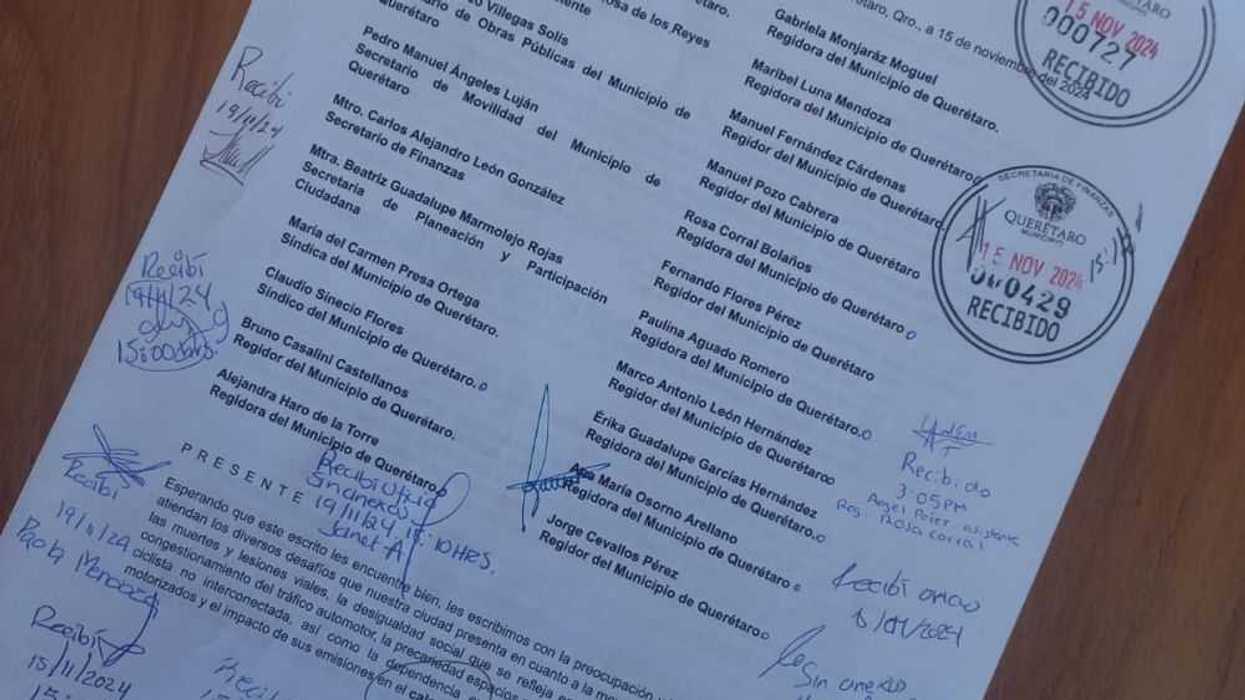 Qro., a 15 de noviembre del 2024
QUERÉTARO
15 NOV 2024
000727
RECIBIDO
Villegas Solís
de Obras Públicas del Municipio de
Querétaro
Pedro Manuel Ángeles Luján
Secretario de Movilidad del Municipio de
Querétaro
Mtro. Carlos Alejandro León González
Secretario de Finanzas
Mtra. Beatriz Guadalupe Marmolejo Rojas
Secretaria de Planeación y Participación
Ciudadana
María del Carmen Presa Ortega
Síndica del Municipio de Querétaro.
Claudio Sinecio Flores
Síndico del Municipio de Querétaro.
Bruno Casalini Castellanos
Regidor del Municipio de Querétaro.
Alejandra Haro de la Torre
Regidora del Municipio de Querétaro
de los Reyes
Gabriela Monjaráz Moguel
Regidora del Municipio de Querétaro.
Maribel Luna Mendoza
Regidora del Municipio de Querétaro
Manuel Fernández Cárdenas
Regidor del Municipio de Querétaro.
Manuel Pozo Cabrera
Regidor del Municipio de Querétaro
Rosa Corral Bolaños
Regidora del Municipio de Querétaro.
Fernando Flores Pérez
Regidor del Municipio de Querétaro
Paulina Aguado Romero
Regidora del Municipio de Querétaro.
Marco Antonio León Hernández
Regidor del Municipio de Querétaro
Érika Guadalupe Garcías Hernández
Regidora del Municipio de Querétaro.
Ana María Osornio Arellano
Regidora del Municipio de Querétaro
Jorge Cevallos Pérez
Regidor del Municipio de Querétaro
SECRETARIA DE FINANZAS
QUERÉTARO
MUNICIPIO
15 NOV 2024
000429
RECIBIDO
PRESENTE
Esperando que este escrito les encuentre bien, les escribimos con la preocupación
atiendan los diversos desafíos que nuestra ciudad presenta en cuanto a la
las muertes y lesiones viales, la desigualdad social que se refleja en
congestionamiento del tráfico automotor, la precariedad espacios
ciclista no interconectada, así como la dependencia
motorizados y el impacto de sus emisiones en el
Recibí
19/11/24
Recibí
19/11/24
15:00 hrs.
Recibí
19/11/24
Paola Mendoza
Recibí
15/11/2024
Recibí Oficio
Sin anexos
19/11/24 15:10 HRS.
Janet A
Recibido
3:05 PM
Angel Peier asistente
Reg. Rosa Corral
Recibí
Sin anexo